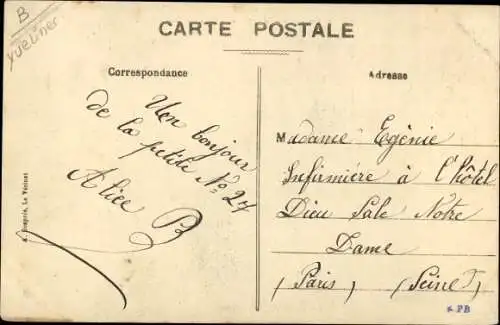 B
Yveliner
CARTE POSTALE
Correspondance
Adresse
Uen bonjour
de la petite No 24
Alice B
Madame Egénie
Infirmière à l'hôtel
Dieu Sale Notre
Dame
(Paris) (Seine)
Le Vésinet
PB